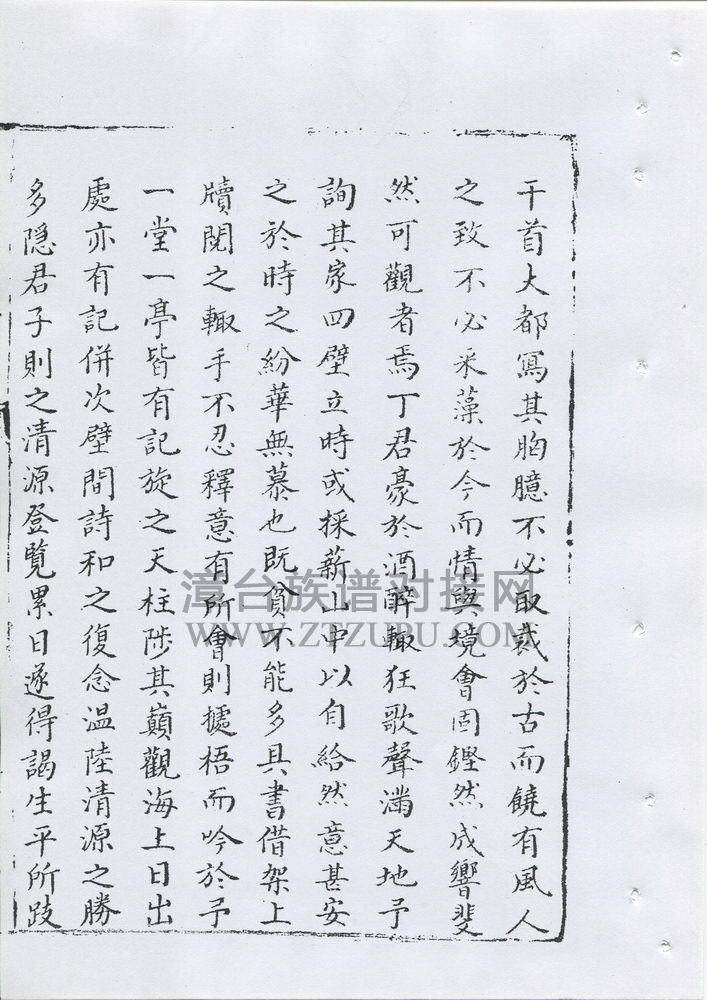 干首大都寫其胸臆不必取裁於古而饒有風人
之致不必采藻於今而情與境會固鏗然成響斐
然可觀者焉丁君豪於酒醉輙狂歌聲滿天地予
詢其家四壁立時或採薪山中以自給然意甚安
之於時之紛華無慕也既貧不能多具書借架上
牘閱之輙手不忍釋意有所會則據梧而吟於予
一堂一亭皆有記旋之天柱陟其巔觀海上日出
處亦有記併次壁間詩和之復念溫陸清源之勝
多隱君子則之清源登覽累日遂得謁生平所跂
漳台族谱对接网
WWW.ZTZUPU.COM